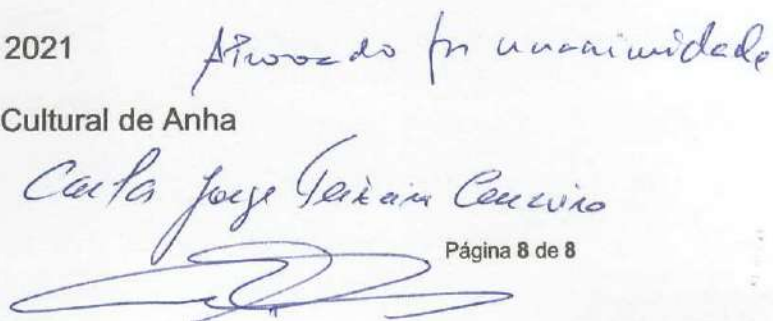 2021 Aprovado por unanimidade
Cultural de Anha
Carla Jorge Teixeira
Página 8 de 8